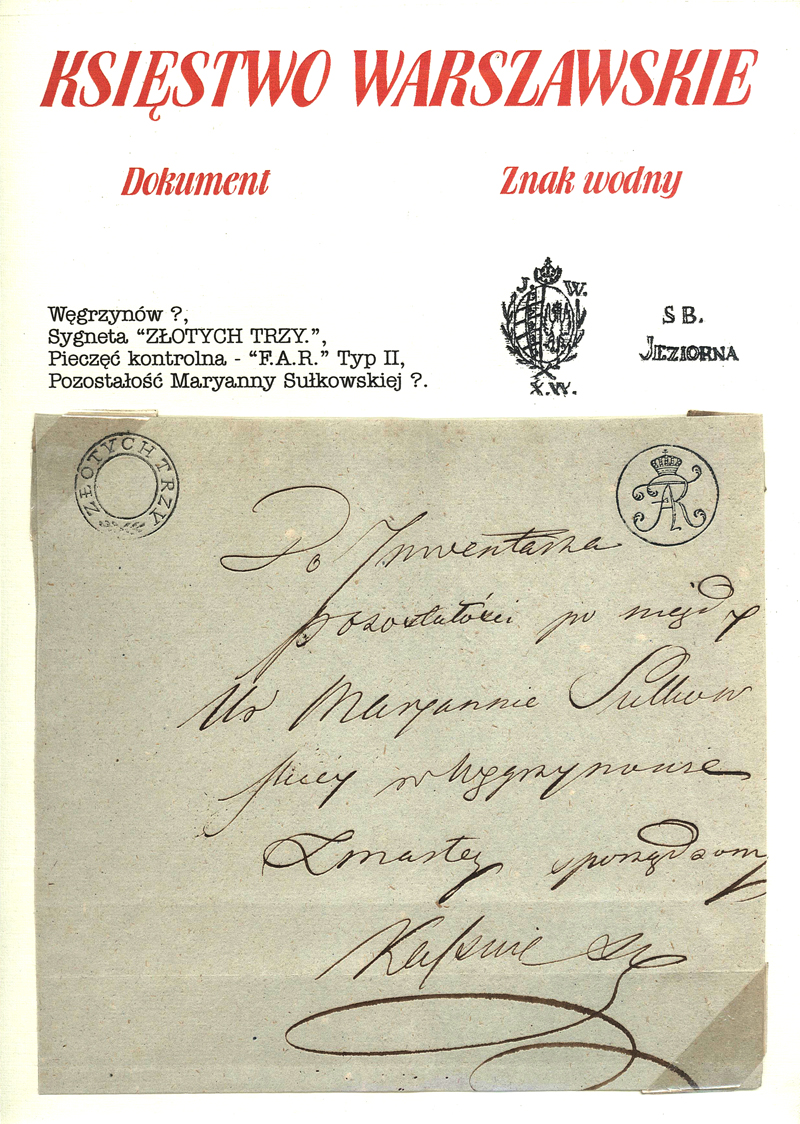 KSIĘSTWO WARSZAWSKIE
Dokument
Znak wodny
Węgrzynów ?,
Sygneta “ZŁOTYCH TRZY.”,
Pieczęć kontrolna - “F.A.R.” Typ II,
Pozostałość Maryanny Sułkowskiej ?.
J. W.
X.W.
S B.
JEZIORNA
ZŁOTYCH TRZY
Do Inwentarza
pozostałości po niegdy
Ur Maryannie Sulkow
skiey w Węgrzynowie
Zmarłey sporządzony